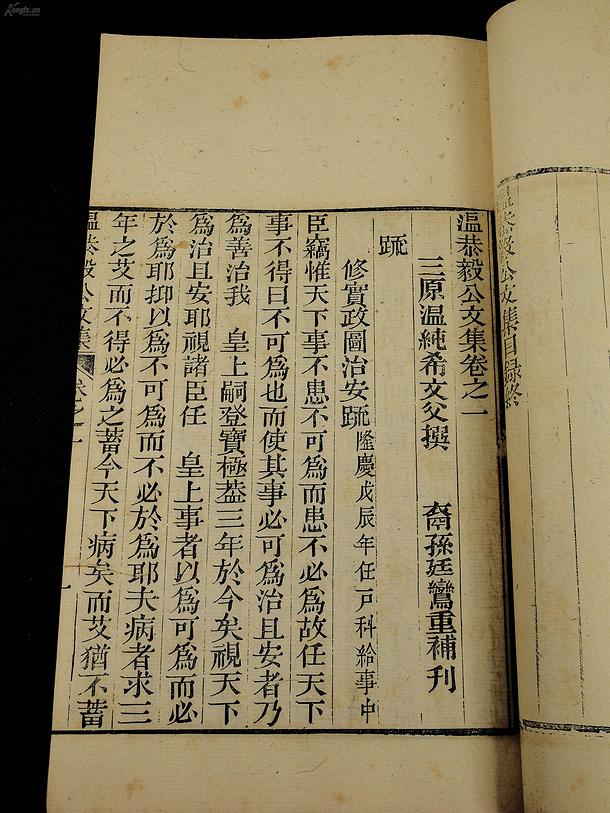 Kongfz.cn
溫恭毅公文集目録終
溫恭毅公文集卷之一
三原溫純希文父撰 裔孫廷鸞重補刊
疏
修實政圖治安疏隆慶戊辰年任戸科給事中
臣竊惟天下事不患不可爲而患不必爲故任天下
事不得曰不可爲也而使其事必可爲治且安者乃
爲善治我 皇上嗣登寶極葢三年於今矣視天下
爲治且安耶視諸臣任 皇上事者以爲可爲而必
於爲耶抑以爲不可爲而不必於爲耶夫病者求三
年之艾而不得必爲之蓄今天下病矣而艾猶不蓄
溫恭毅公文集 卷之一 一